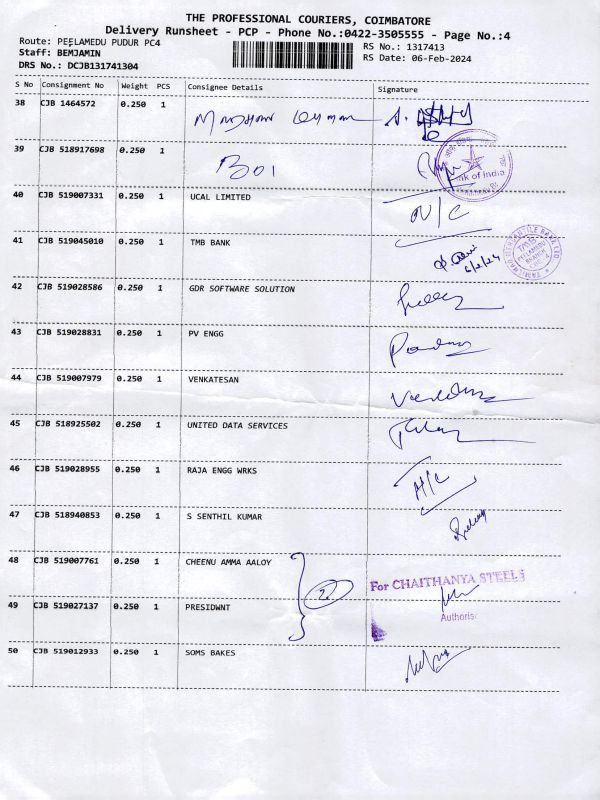 THE PROFESSIONAL COURIERS, COIMBATORE
Delivery Runsheet - PCP - Phone No.:0422-3505555 - Page No.:4
Route: PEELAMEDU PUDUR PC4
RS No.: 1317413
Staff: BEMJAMIN
RS Date: 06-Feb-2024
DRS No.: DCJB131741304
S No Consignment No Weight PCS Consignee Details Signature
38 CJB 1464572 0.250 1
39 CJB 518917698 0.250 1 BOI
Bank of India
40 CJB 519007331 0.250 1 UCAL LIMITED N/C
41 CJB 519045010 0.250 1 TMB BANK
6/2/24
TAMILNAD MERCANTILE BANK LTD
PEELAMEDU
BRANCH
42 CJB 519028586 0.250 1 GDR SOFTWARE SOLUTION
43 CJB 519028831 0.250 1 PV ENGG
44 CJB 519007979 0.250 1 VENKATESAN
45 CJB 518925502 0.250 1 UNITED DATA SERVICES
46 CJB 519028955 0.250 1 RAJA ENGG WRKS
47 CJB 518940853 0.250 1 S SENTHIL KUMAR
48 CJB 519007761 0.250 1 CHEENU AMMA AALOY
For CHAITHANYA STEELS
2
49 CJB 519027137 0.250 1 PRESIDWNT
Authoris
50 CJB 519012933 0.250 1 SOMS BAKES